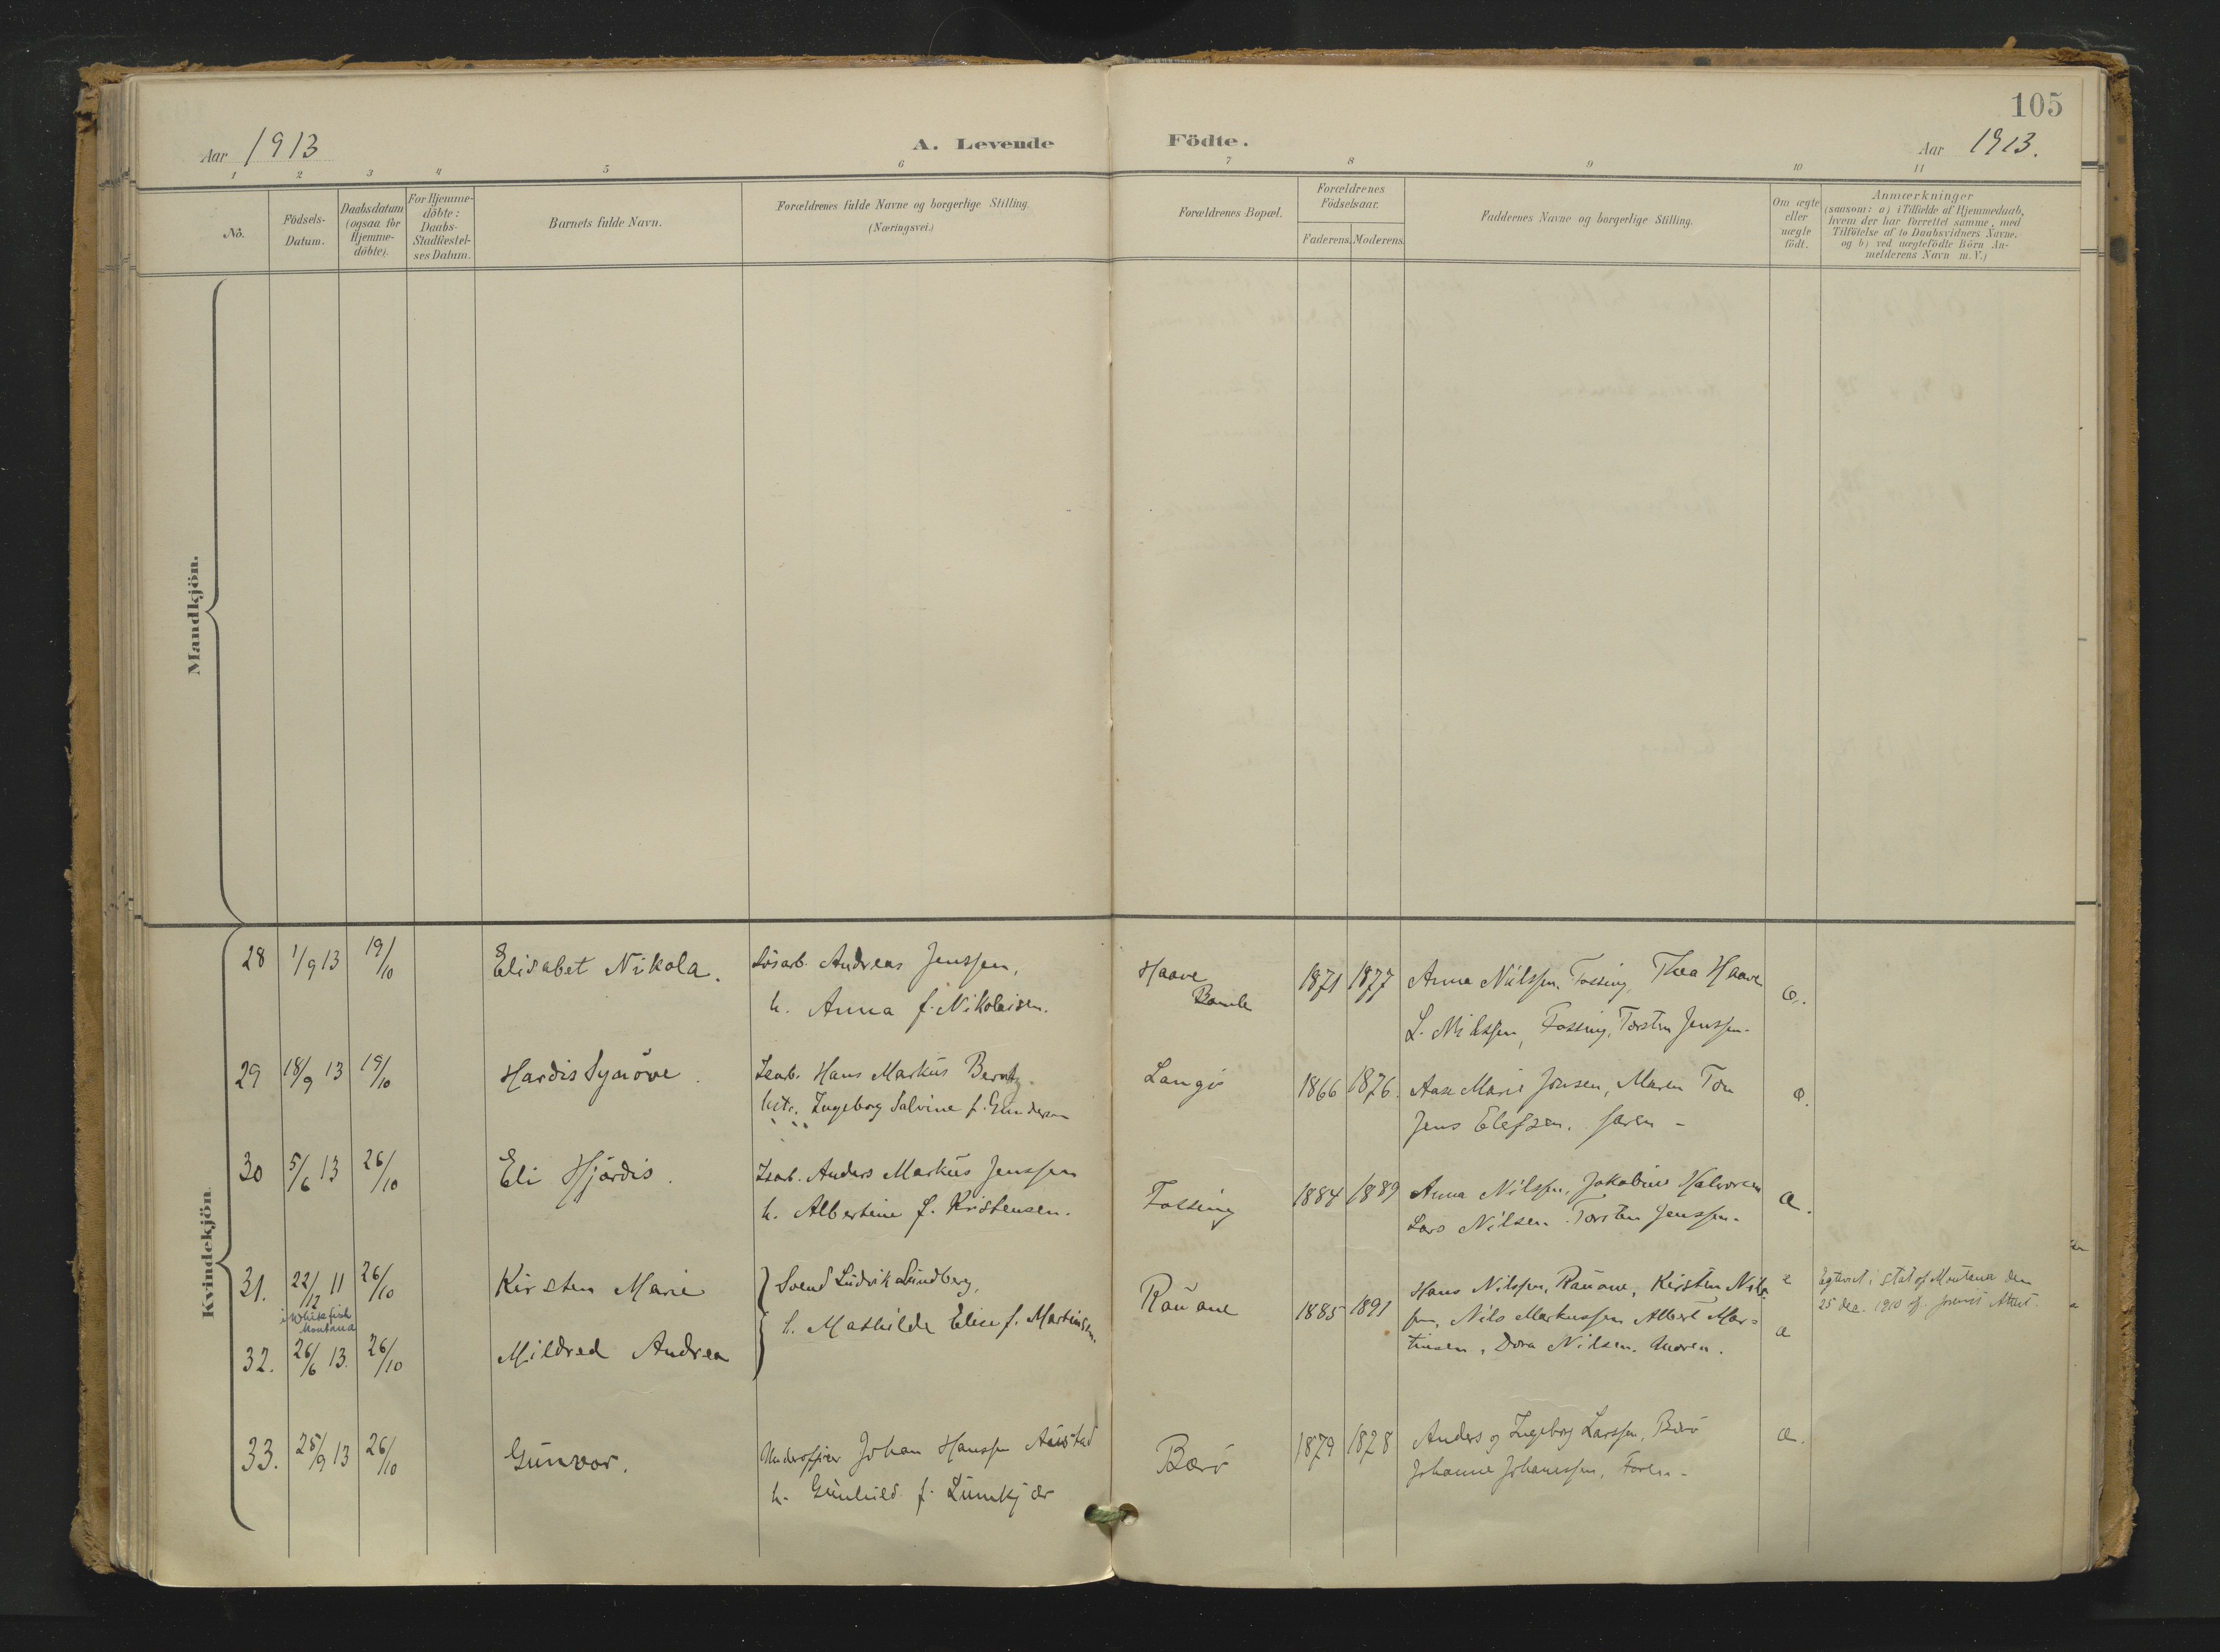 105
Aar 1913
A. Levende Födte.
Aar 1913.
1 2 3 4 5 6 7 8 9 10 11
No.
Födsels-
Datum.
Daabsdatum
(ogsaa for
Hjemme-
döbte).
For Hjemme-
döbte:
Daabs-
Stadfæstel-
ses Datum.
Barnets fulde Navn.
Forældrenes fulde Navne og borgerlige Stilling
(Næringsvei.)
Forældrenes Bopæl.
Forældrenes
Födselsaar.
Faderens. Moderens.
Faddernes Navne og borgerlige Stilling.
Om ægte
eller
uægte
födt.
Anmærkninger
(saasom: a) i Tilfælde af Hjemmedaab,
hvem der har forrettet samme, med
Tilföielse af to Daabsvidners Navne.
og b) ved uægtefödte Börn An-
melderens Navn m.V.)
Mandkjön.
Kvindekjön.
28 1/9 13 19/10 Elisabet Nikola. Lösarb. Andreas Jenssen, Haave 1871 1877 Anna Nilssen, Fossing, Thea Haave
h. Anna f. Nikolaisen. Bamle L. Nilssen, Fossing, Torsten Jenssen.
29 18/9 13 19/10 Hardis Synöve. Hans Markus Langö 1866 1876. Aase Marie Jonsen, Maren
Ingeborg Salvine f. Gundersen Jens Elefsen.
30 5/6 13 26/10 Eli Hjördis. Anders Markus Jenssen Fossing 1884 1889 Anna Nilssen, Jakobine Halvorsen
h. Albertine f. Kristensen. Lars Nilsen. Torsten Jenssen.
31. 22/12 11 26/10 Kirsten Marie Svend Ludvik Lundberg, Rauane 1885 1891 Hans Nilssen, Rauane, Kirsten Nils-
i Whitefish
Montana
h. Mathilde Elise f. Martinsen. sen, Nils Markussen Albert Mar-
32. 26/6 13. 26/10 Mildred Andrea tinsen, Dora Nilsen.
i stat of Montana den
25 dec. 1910
33. 25/9 13 26/10 Gunvor. Underofficer Johan Hanssen Bærö 1879 1878 Anders og Ingeborg Larssen, Bærö
h. Gunhild f. Johanne Johanessen,